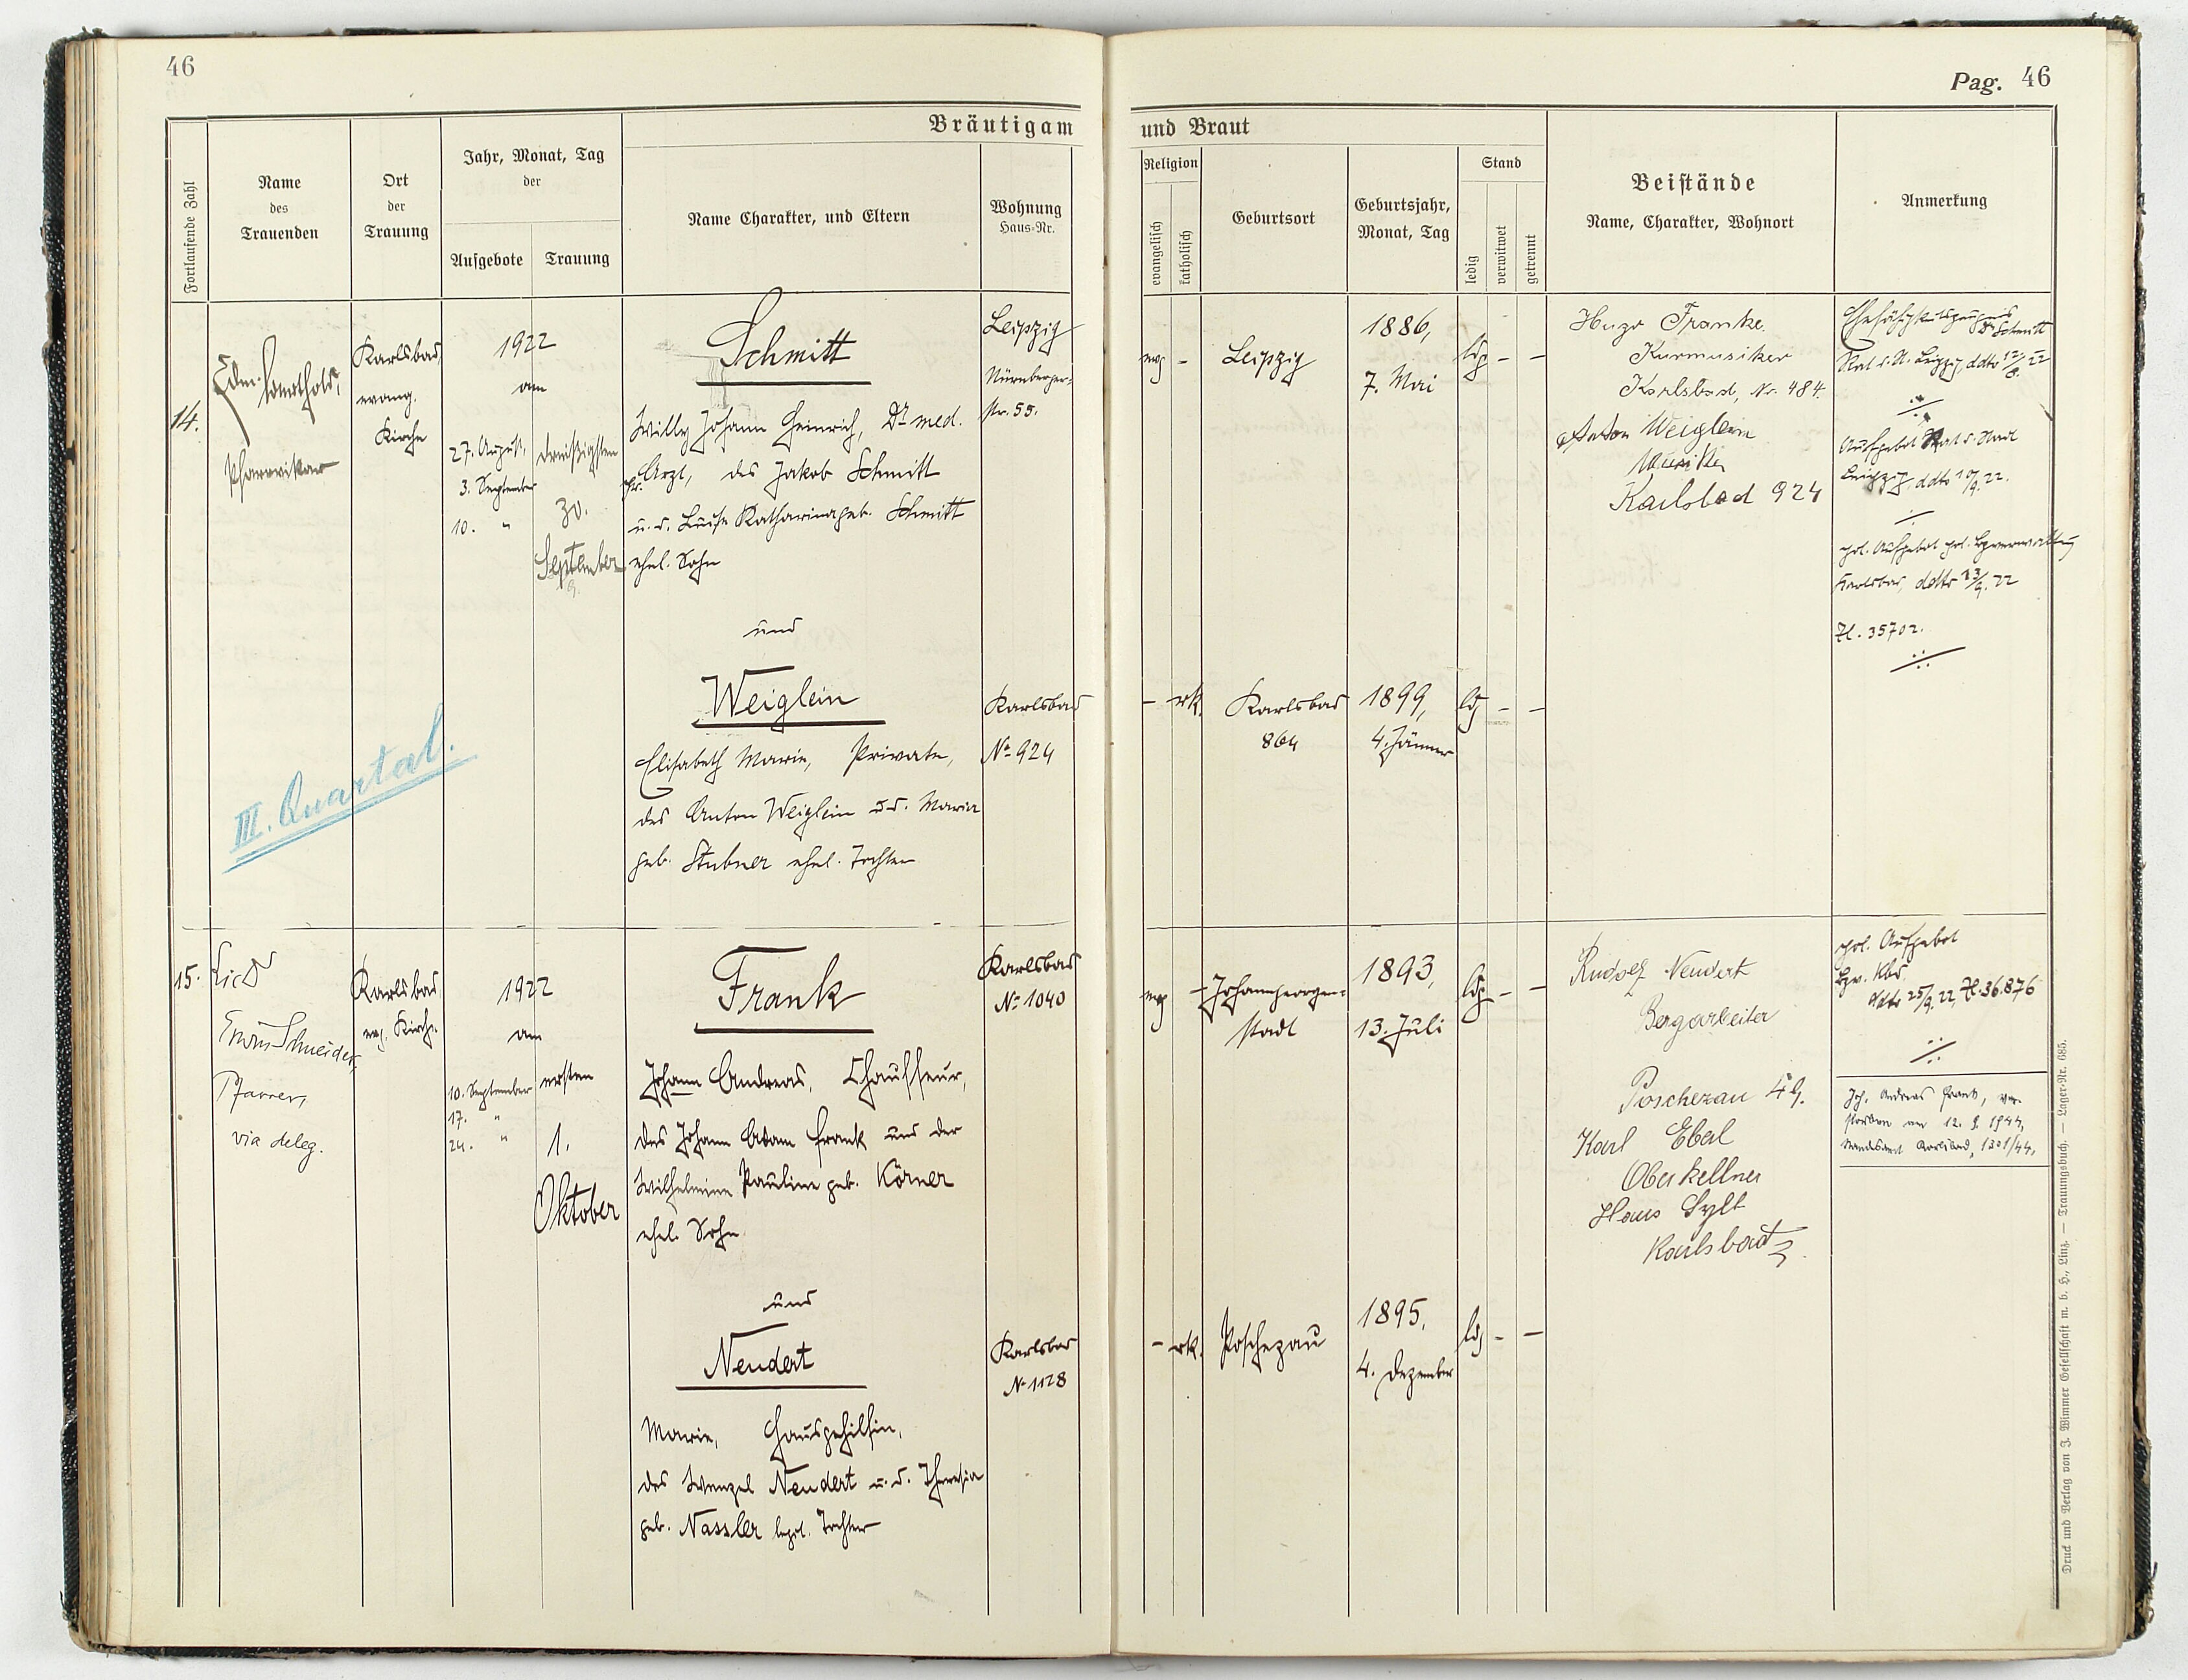 46
Pag. 46
Bräutigam
und Braut
Fortlaufende Zahl
Name
des
Trauenden
Ort
der
Trauung
Jahr, Monat, Tag
der
Aufgebote
Trauung
Name Charakter, und Eltern
Wohnung
Haus-Nr.
Religion
evangelisch
katholisch
Geburtsort
Geburtsjahr,
Monat, Tag
Stand
ledig
verwitwet
getrennt
Beistände
Name, Charakter, Wohnort
Anmerkung
14.
Edm.
Pfarrvikar
Karlsbad,
evang.
Kirche
1922
am
27. August,
3. September
10. "
dreißigsten
30.
September
Schmitt
Willy Johann Heinrich, Dr med.
Arzt, des Jakob Schmitt
u. d. Luise Katharina geb. Schmitt
ehel. Sohn
Leipzig
Nürnberger-
str. 55.
evg -
Leipzig
1886,
7. Mai
ldg - -
Hugo Franke.
Kurmusiker
Karlsbad, Nr. 484.
Anton Weiglein
Musiker
Karlsbad 924
Ehefähigkeitszeugnis
Dr Schmitt
Rat d. St. Leipzig, ddto 12/8. 22
Aufgebot Rat d. Stadt
Leipzig, ddto 10/9. 22.
pol. Aufgebot pol. Bzverwaltung
Karlsbad, ddto 13/9. 22
Zl. 35702.
und
Weiglein
Elisabeth Marie, Private,
des Anton Weiglein u. d. Maria
geb. Stubner ehel. Tochter
Karlsbad
No 924
- rk.
Karlsbad
864
1899,
4. Jänner
ldg - -
III. Quartal.
15.
Lic Dr
Erwin Schneider,
Pfarrer,
via deleg.
Karlsbad,
evg. Kirche.
1922
am
10. September
17. "
24. "
ersten
1.
Oktober
Frank
Johann Andreas, Chauffeur,
des Johann Adam Frank und der
Wilhelmine Pauline geb. Körner
ehel. Sohn
Karlsbad
No 1040
evg -
Johanngeorgen-
stadt
1893,
13. Juli
ldg - -
Rudolf Neudert
Bergarbeiter
Poschezau 49.
Karl Eberl
Oberkellner
Haus Sylt
Karlsbad
pol. Aufgebot
Bzv. Kbd
ddto 25/9. 22, Zl. 36.876
Joh. Andreas Frank, ver-
storben am 12. 9. 1944,
Standesamt Karlsbad, 1301/44.
und
Neudert
Marie, Hausgehilfin,
des Wenzel Neudert u. d. Theresia
geb. Nassler legit. Tochter
Karlsbad
No 1128
- rk.
Poschezau
1895,
4. Dezember
ldg - -
Druck und Verlag von J. Wimmer Gesellschaft m. b. H., Linz. — Trauungsbuch. — Lager-Nr. 685.